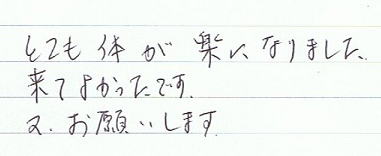 とても体が楽になりました。
来てよかったです。
又、お願いします